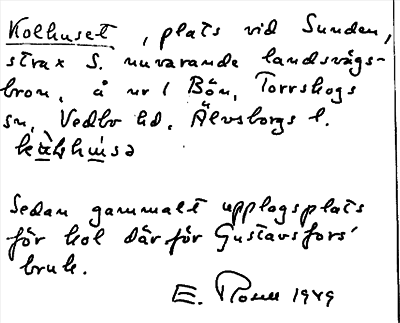 Kolhuset, plats vid Sunden,
strax S. nuvarande landsvägs-
bron, å nr 1 Bön, Torrskogs
sn, Vedbo hd. Älvsborgs l.
Sedan gammalt upplogsplats
för kol därför Gustavsfors'
bruk.
E. 1949